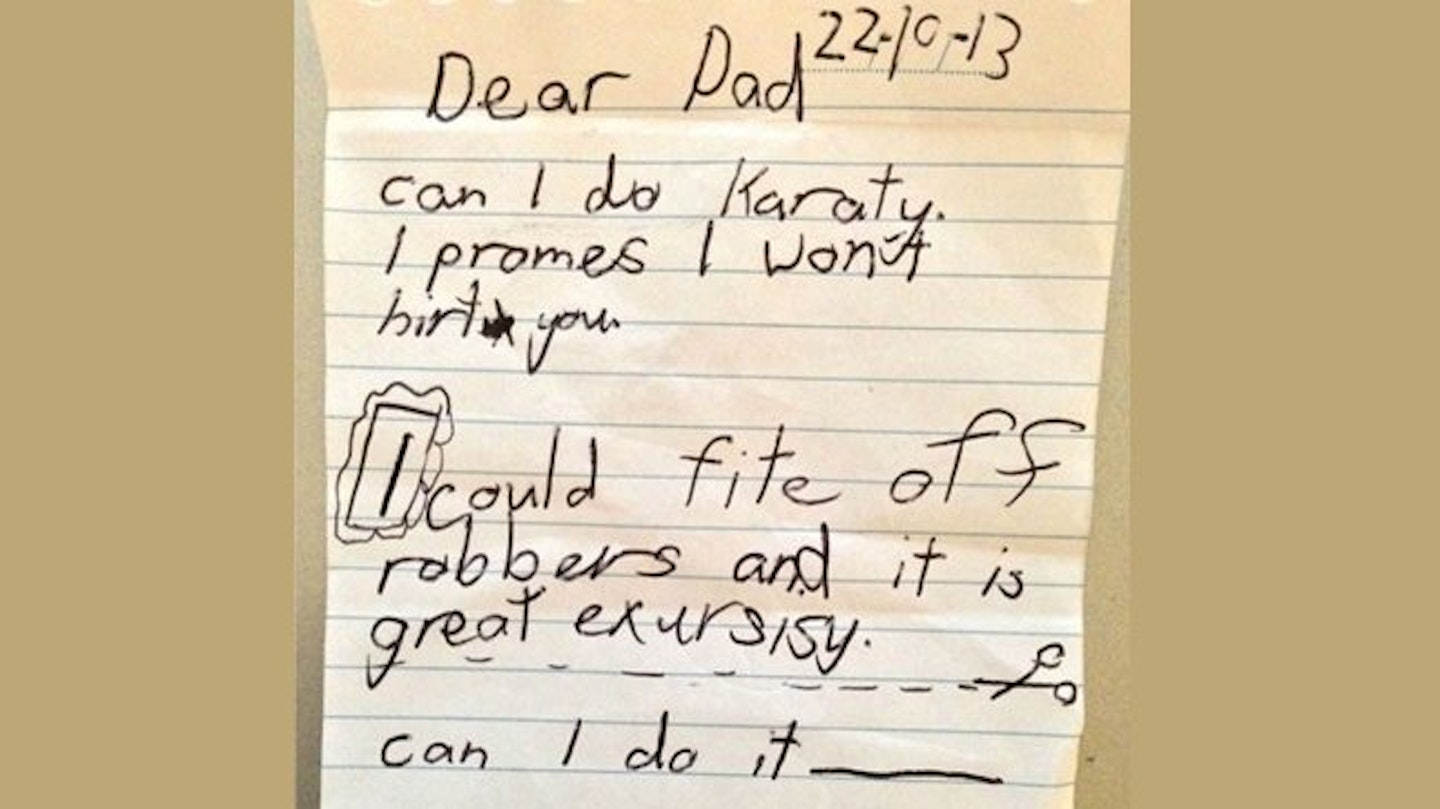 Dear Dad 22-10-13
can I do Karaty.
I promes I won't
hirt you.
I could fite off
robbers and it is
great exursisy.
can I do it